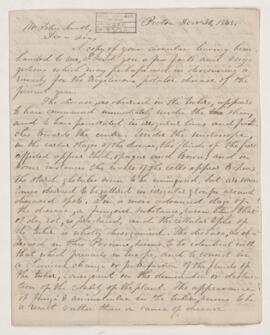 Pictou Nov 24, 1845.
Mr Peter Arnott,
Dear Sir,
A copy of your circular having been
handed to me, I send you a few facts and sugg-
estions which may perhaps aid in discovering a
remedy for the mysterious potatoe disease of the
present year.
The disease, as observed in the tuber, appears
to have commenced immediately under the skin
and to have penetrated in irregular lines and
towards the centre. Under the microscope,
in the earlier stages of the disease, the fluids of the part
affected appear thick, opaque and brown, and in
some instances the walls of the cells appear brown,
the starch globules were uninjured, but were some-
times observed to be collected in irregular groups around
diseased spots. In a more advanced stage of
the disease, a fungous substance,
of dry rot, is produced, and the cellular tissue of
the tuber is wholly disorganised. The disease, as ob-
served in this Province, seems to be identical with
that which prevails in Europe, and to consist in
a chemical change or putrefaction of the fluids of
the tuber, consequent on the diminution or destruc-
tion of the vitality of the plant. The appearance
of Fungi & animalculae in the tuber, seems to be
a result rather than a cause of disease.